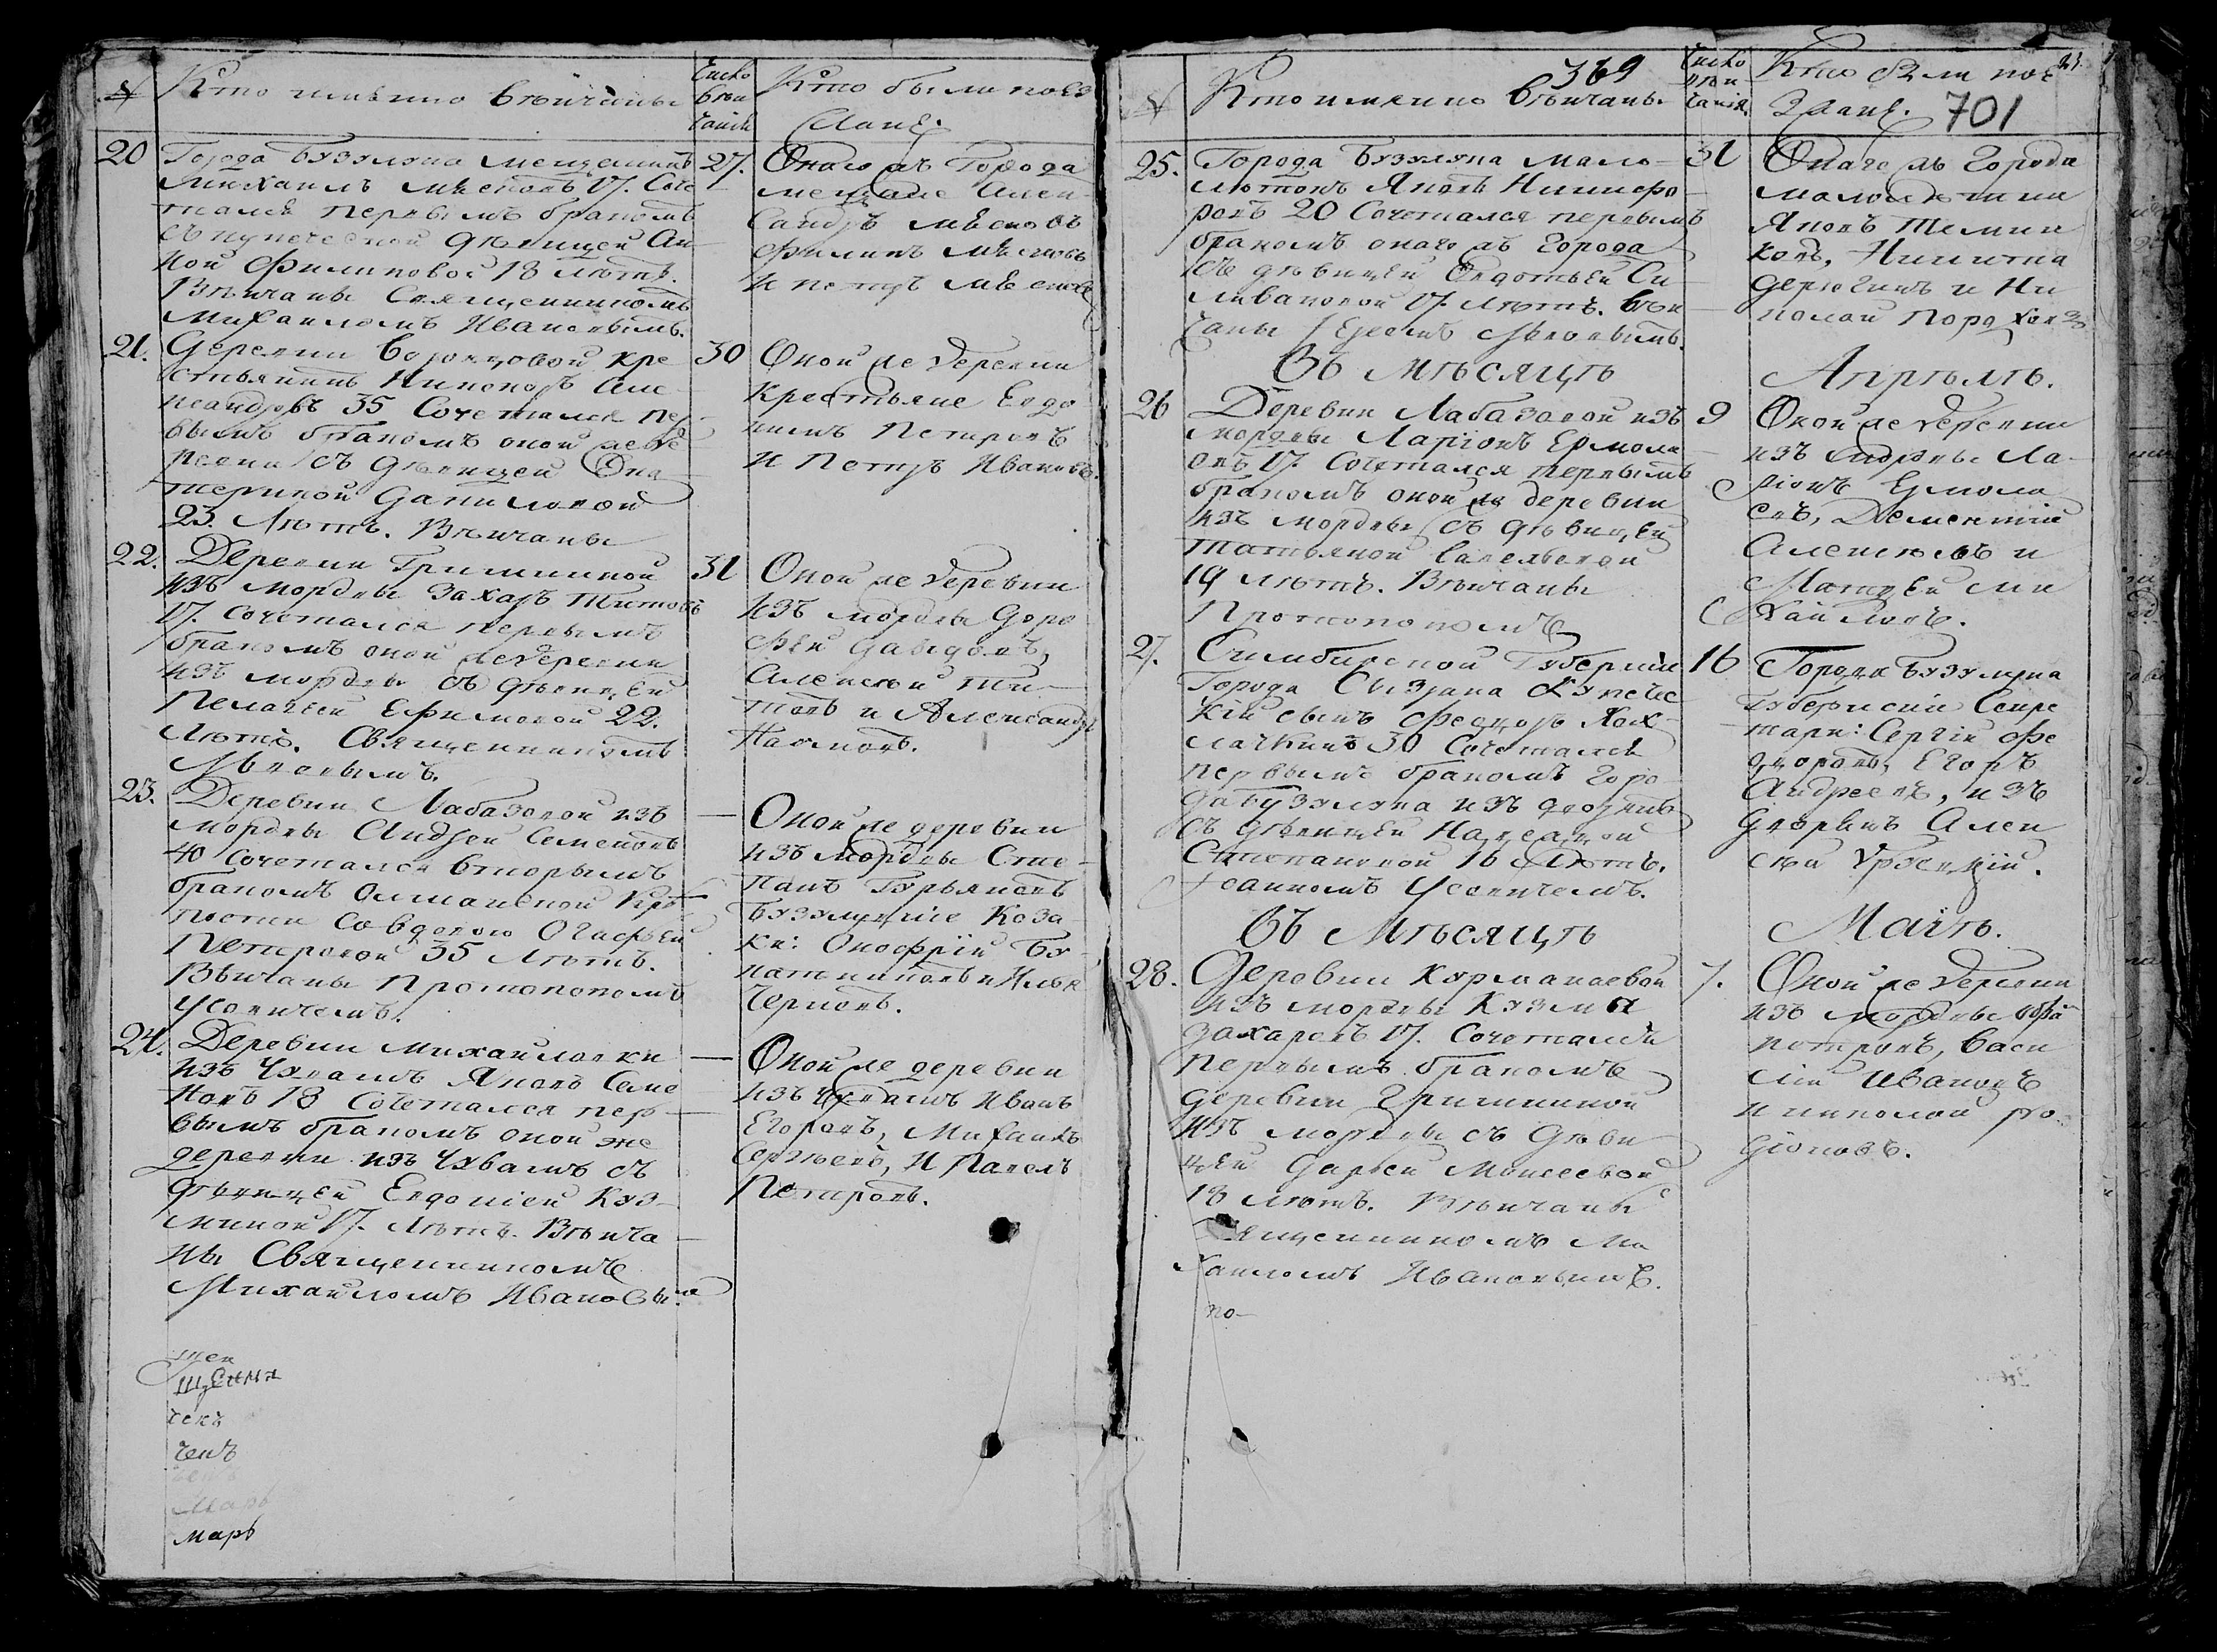 №
Кто имянно венчаны
Число
вен
чания
Кто были поез
жане.
20
Города Бузулука мещанинъ
27.
Михаилъ Мясковъ 17. Соче
тался первымъ бракомъ
съ купеческой девицей Ан
ной Филиповой 18 летъ.
Венчаны Священникомъ
Михаиломъ Ивановымъ.
Онаго жъ Города
мещане Алек
сандръ
Филипъ
и петръ
21.
Деревни Воронцовой кре
30
стьянинъ Никоноръ Але
ксандровъ 35 Сочетался пер
вымъ бракомъ оной же де
ревни съ девицей Ека
териной Даниловой
23. Летъ. Венчаны
Оной же деревни
крестьяне Евдо
кимъ Петровъ
и Петръ Ивановъ.
22.
Деревни Гришкиной
31
изъ мордвы Захаръ Титовъ
17. сочетался первымъ
бракомъ оной же деревни
изъ мордвы съ девицей
Пелагеей Ефимовой 22.
Летъ. Священникомъ
Львовымъ.
Оной же деревни
изъ мордвы Доро
фей Давыдовъ,
Алексей Ти
товъ и Александръ
Наумовъ.
23.
Деревни Лабазовой изъ
—
мордвы Андрей Семеновъ
40 сочетался вторымъ
бракомъ Олшанской Кре
пости Со вдовою Огафьей
Петровой 35 Летъ.
Венчаны Протопопомъ
Усовичемъ.
Оной же деревни
изъ мордвы Сте
панъ Гурьяновъ
Бузулуцкие Коза
ки: Онофрій
и Илья
Черновъ.
24.
Деревни Михайловки
—
изъ Чувашъ Яковъ Семе
новъ 18 Сочетался пер
вымъ бракомъ оной же
деревни изъ Чувашъ съ
девицей Евдокией Куз
миной 17. Летъ. Венча
ны Священникомъ
Михаиломъ Ивановымъ
Оной же деревни
изъ Чувашъ Иванъ
Егоровъ, Михаилъ
Сергеевъ, и Павелъ
Петровъ.
чекъ
чекъ
Марь
марь
369
№
Кто имянно венчаны
Число
вен
чания.
Кто были пое
зжане.
701
25.
Города Бузулука мало
31
летокъ Яковъ Никифо
ровъ 20 Сочетался первымъ
бракомъ онаго жъ Города
съ девицей Евдотьей Се
ливановой 17. Летъ. Вен
чаны Іереемъ Львовымъ.
Онаго жъ Города
малолетки
Яковъ
Никита
Дерюгинъ и Ни
колай
Въ месяце
Апреле.
26
Деревни Лабазовой изъ
9
мордвы Ларіонъ Ермола
евъ 17. Сочетался первымъ
бракомъ оной же деревни
изъ мордвы съ девицей
Татьяной Савельевой
19 летъ. Венчаны
Протопопомъ
Оной же деревни
изъ мордвы Ла
ріонъ Ермола
евъ, Дементій
Алексеевъ и
Матвей Ми
хайловъ.
27.
Симбирской Губерніи
16
Города Сызрана Купечес
кій сынъ Феодоръ Хох
лачкинъ 30 Сочетался
первымъ бракомъ Горо
да Бузулука изъ дворянъ
съ девицей
Степановой 16 Летъ.
Іоанномъ Усовичемъ.
Города Бузулука
Губернскій Секре
тарь: Сергій Фе
доровъ, Егоръ
Андреевъ, изъ
Дворянъ Алек
сей
Въ Месяце
Маіе.
28.
Деревни Курманаевой
7.
изъ мордвы Кузма
Захаровъ 17. Сочетался
первымъ бракомъ
деревни Гришкиной
изъ мордвы съ деви
цей Дарьей Моисеевой
18 летъ. Венчаны
Священникомъ Ми
хаиломъ Ивановымъ.
по
Оной же деревни
изъ мордвы
петровъ, Васи
лій Ивановъ
и николай Ро
діоновъ.